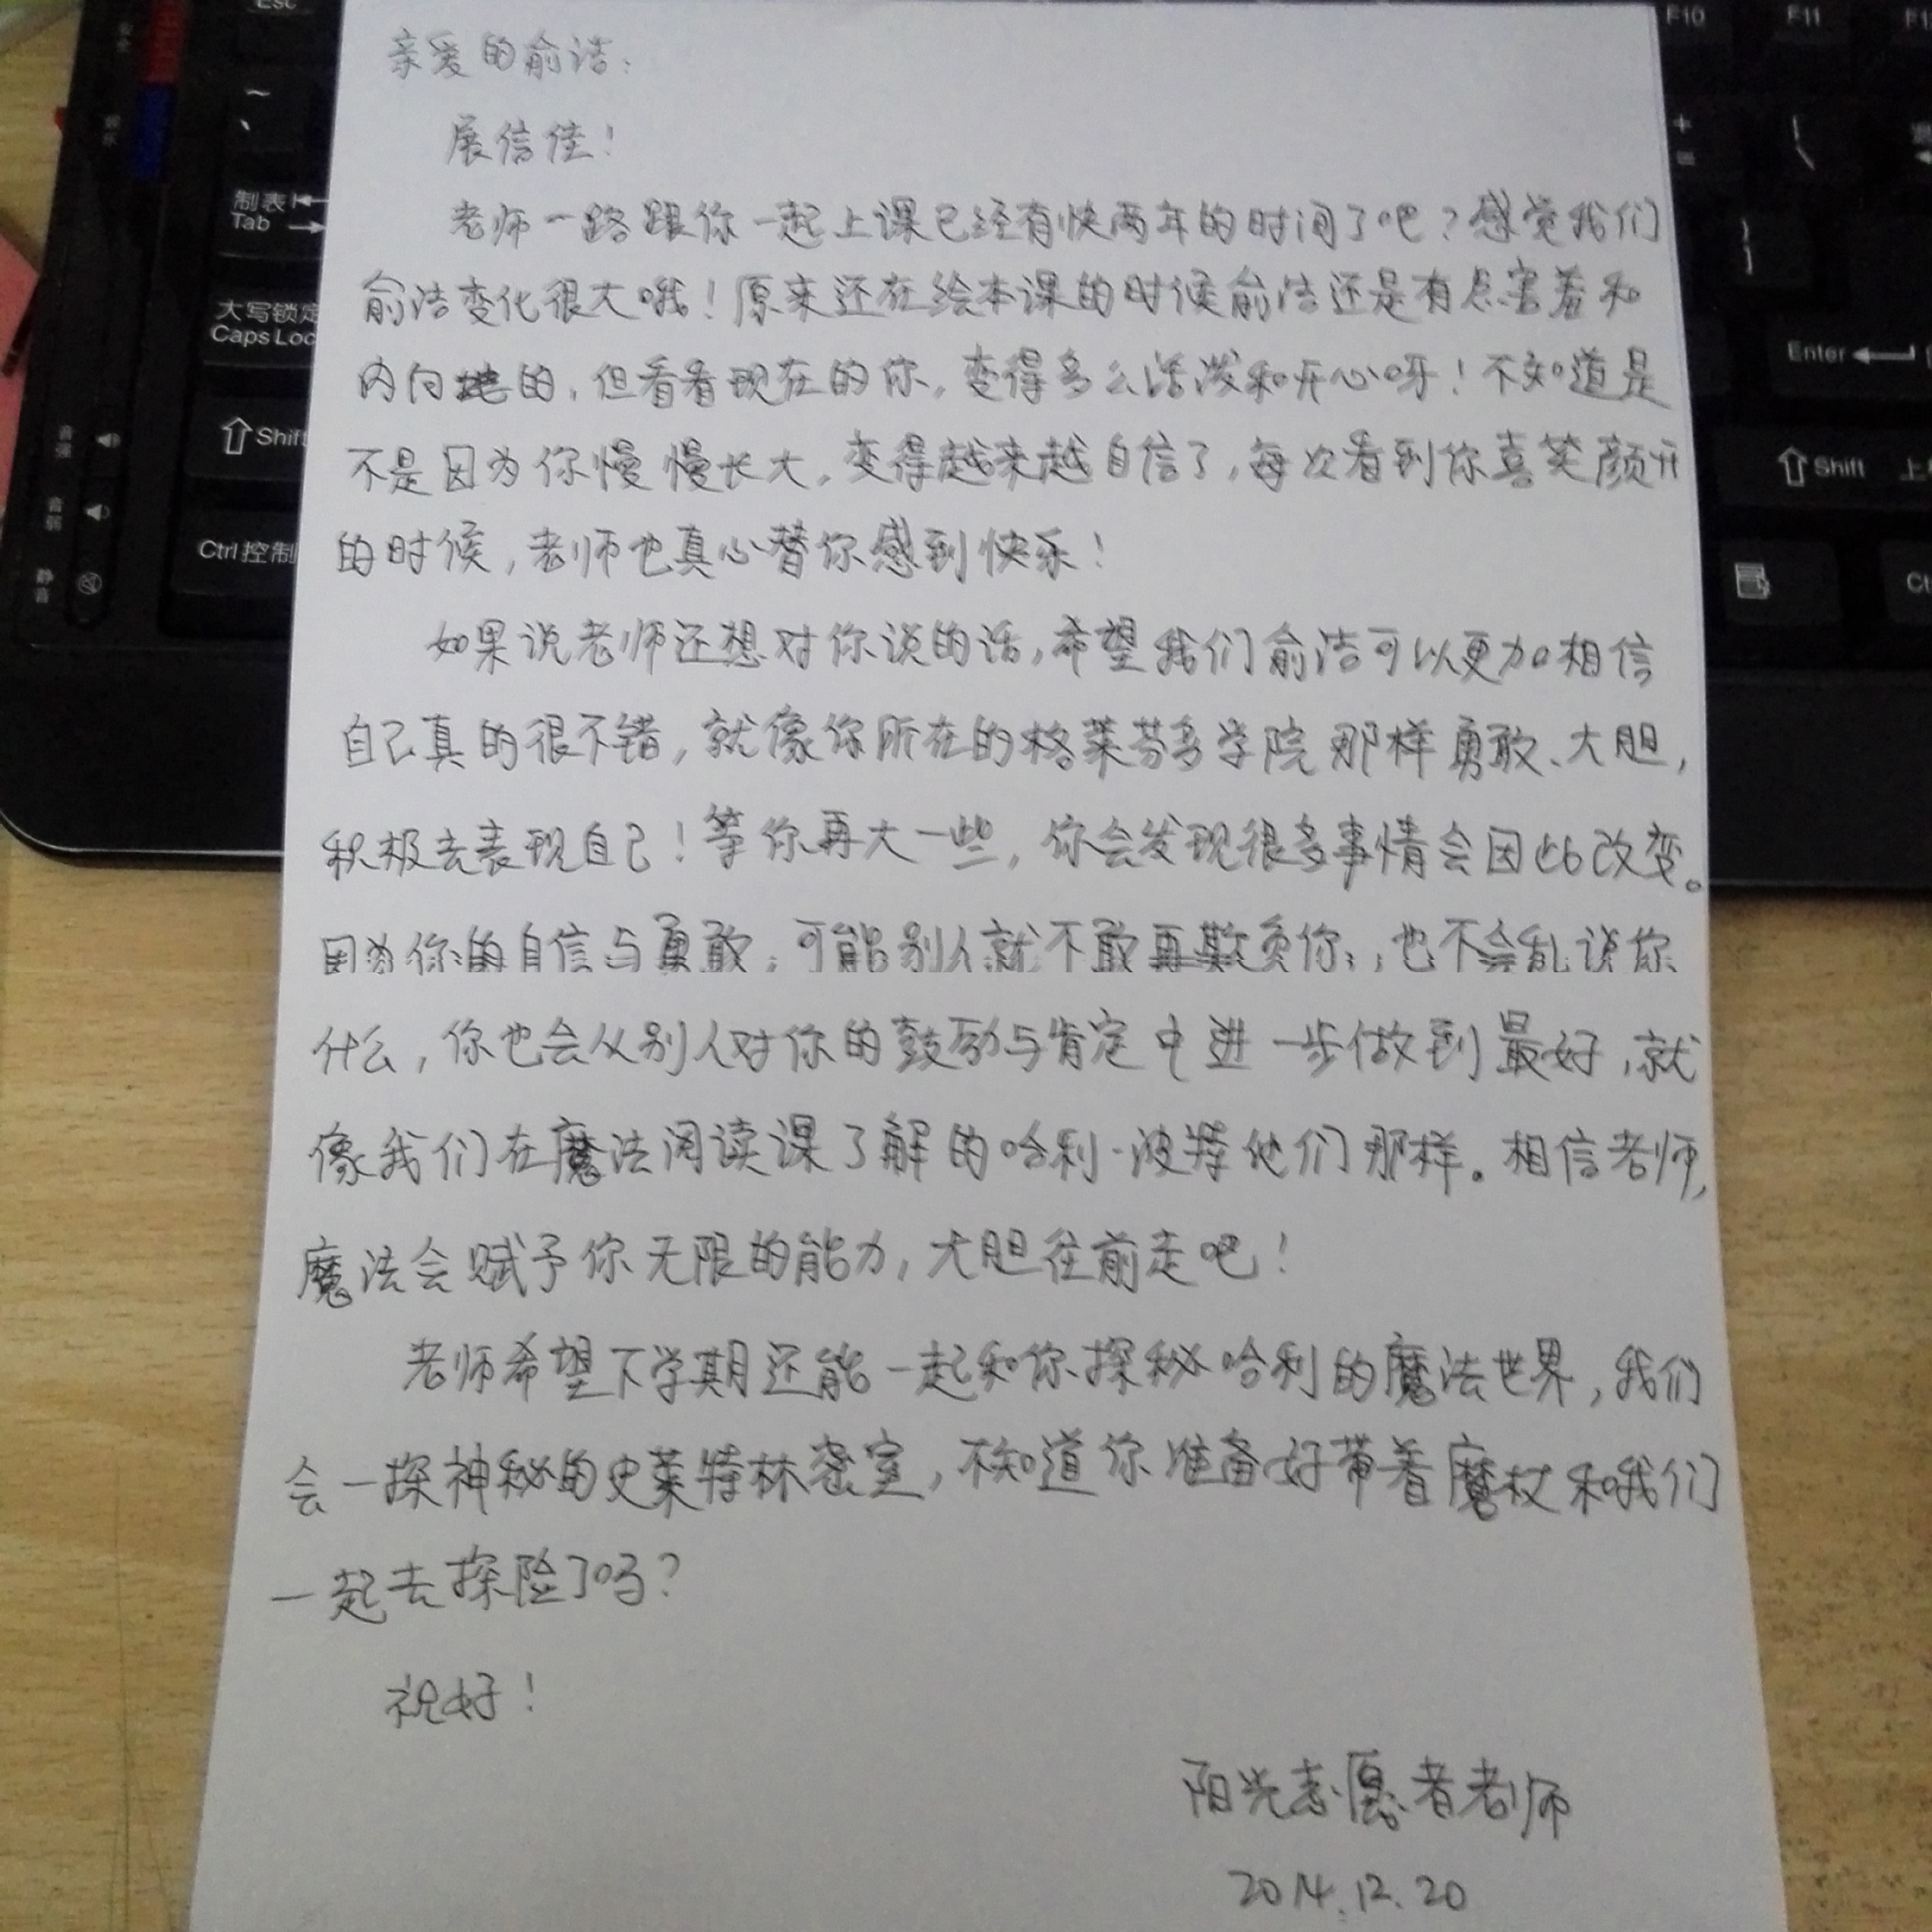 亲爱的俞洁:
展信佳!
老师一路跟你一起上课已经有快两年的时间了吧?感觉我们
俞洁变化很大哦!原来还在绘本课的时候俞洁还是有点害羞和
内向的,但看看现在的你,变得多么活泼和开心呀!不知道是
不是因为你慢慢长大,变得越来越自信了,每次看到你喜笑颜开
的时候,老师也真心替你感到快乐!
如果说老师还想对你说的话,希望我们俞洁可以更加相信
自己真的很不错,就像你所在的格莱芬多学院那样勇敢、大胆,
积极去表现自己!等你再大一些,你会发现很多事情会因此改变。
因为你的自信与勇敢,可能别人就不敢再欺负你,也不会乱说你
什么,你也会从别人对你的鼓励与肯定中进一步做到最好,就
像我们在魔法阅读课了解的哈利·波特他们那样。相信老师,
魔法会赋予你无限的能力,大胆往前走吧!
老师希望下学期还能一起和你探秘哈利的魔法世界,我们
会一探神秘的史莱特林密室,不知道你准备好带着魔杖和我们
一起去探险了吗?
祝好!
阳光志愿者老师
2014.12.20
Esc
F10
F11
制表
Tab
大写锁定
Caps Loc
Shift
Ctrl控制
Enter
Shift
音强
音弱
静音